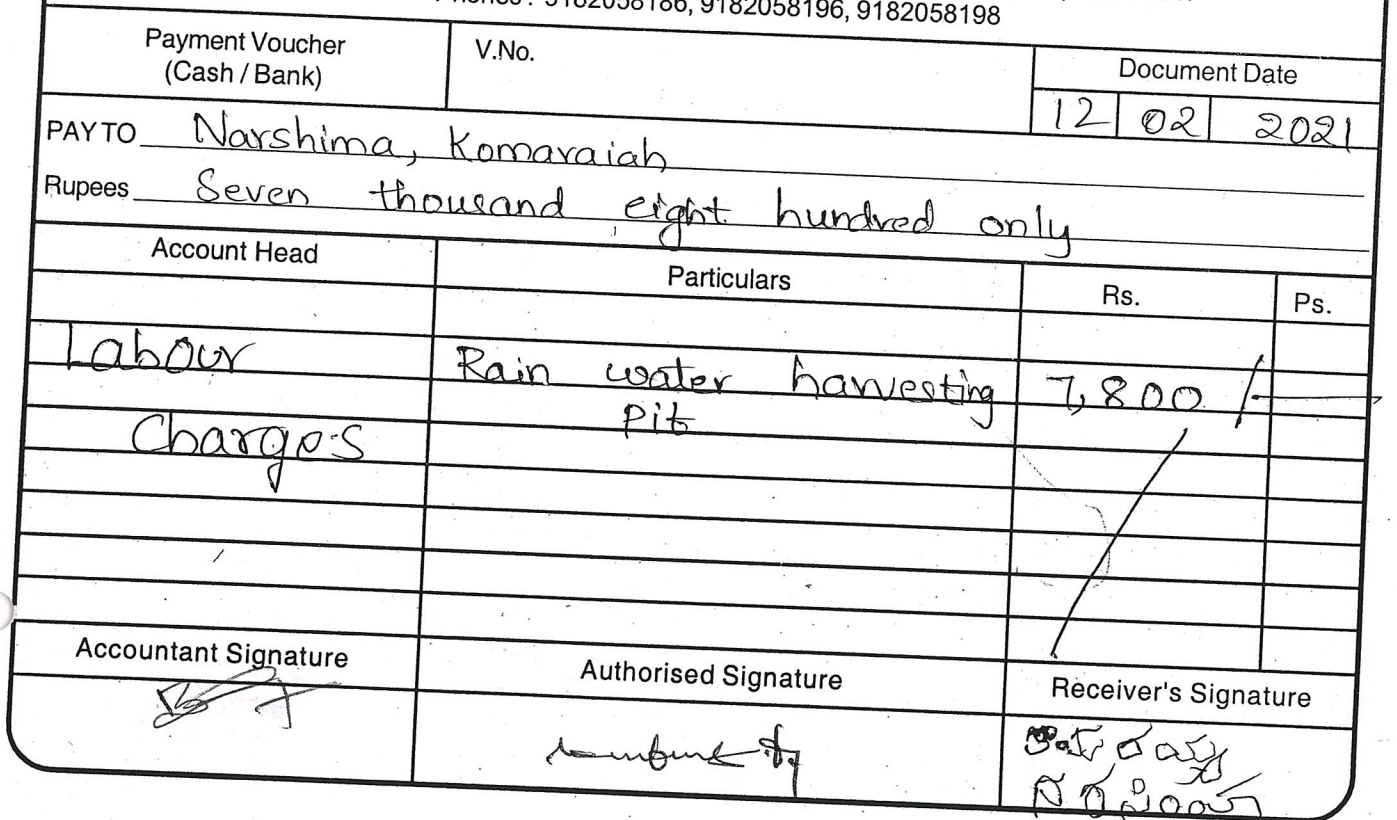 9182058186, 9182058196, 9182058198
Payment Voucher
(Cash / Bank)
V.No.
Document Date
12 02 2021
PAY TO Narshima, Komaraiah
Rupees Seven thousand eight hundred only
Account Head Particulars Rs. Ps.
Labour Rain water harvesting 7,800/-
Charges Pit
Accountant Signature Authorised Signature Receiver's Signature